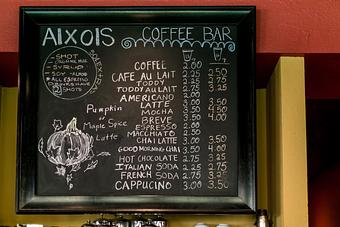 AIXOIS COFFEE BAR
SHOT
SYRUP
SOY
ALL ESPRESSO
SHOTS
COFFEE 2.00
CAFE AU LAIT 2.25 2.50
TODDY 2.25 2.75
TODDY AU LAIT
AMERICANO 2.00
LATTE 3.00 3.50
MOCHA
BREVE
ESPRESSO 2.00
MACCHIATO
CHAI LATTE 3.00 3.50
GOOD MORNING CHAI 3.50 4.00
HOT CHOCOLATE 2.75 3.25
ITALIAN SODA 2.25 2.75
FRENCH SODA 2.75 3.25
CAPPUCINO 3.00 3.50
Pumpkin
or
Maple Spice
Latte